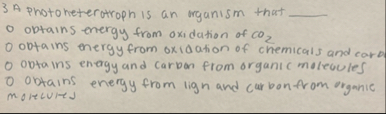 3 A Photoheterotroph is an organism that ____
o obtains energy from oxidation of CO2
o obtains energy from oxidation of chemicals and carb
o obtains energy and carbon from organic molecules
o obtains energy from lign and carbon from organic
molecules